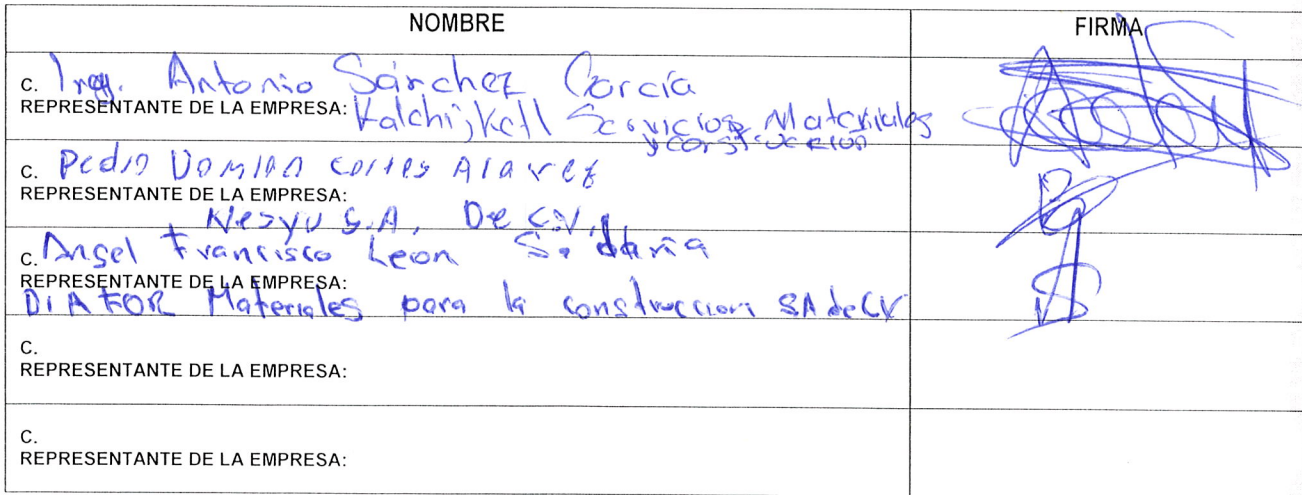 NOMBRE
FIRMA
C. Ing. Antonio Sánchez García
REPRESENTANTE DE LA EMPRESA: Servicios Materiales
y construccion
C. Pedro Damian Cortes
REPRESENTANTE DE LA EMPRESA:
S.A. De C.V.
C. Angel Francisco Leon
REPRESENTANTE DE LA EMPRESA:
DIAFOR Materiales para la construccion SA de CV
C.
REPRESENTANTE DE LA EMPRESA:
C.
REPRESENTANTE DE LA EMPRESA: